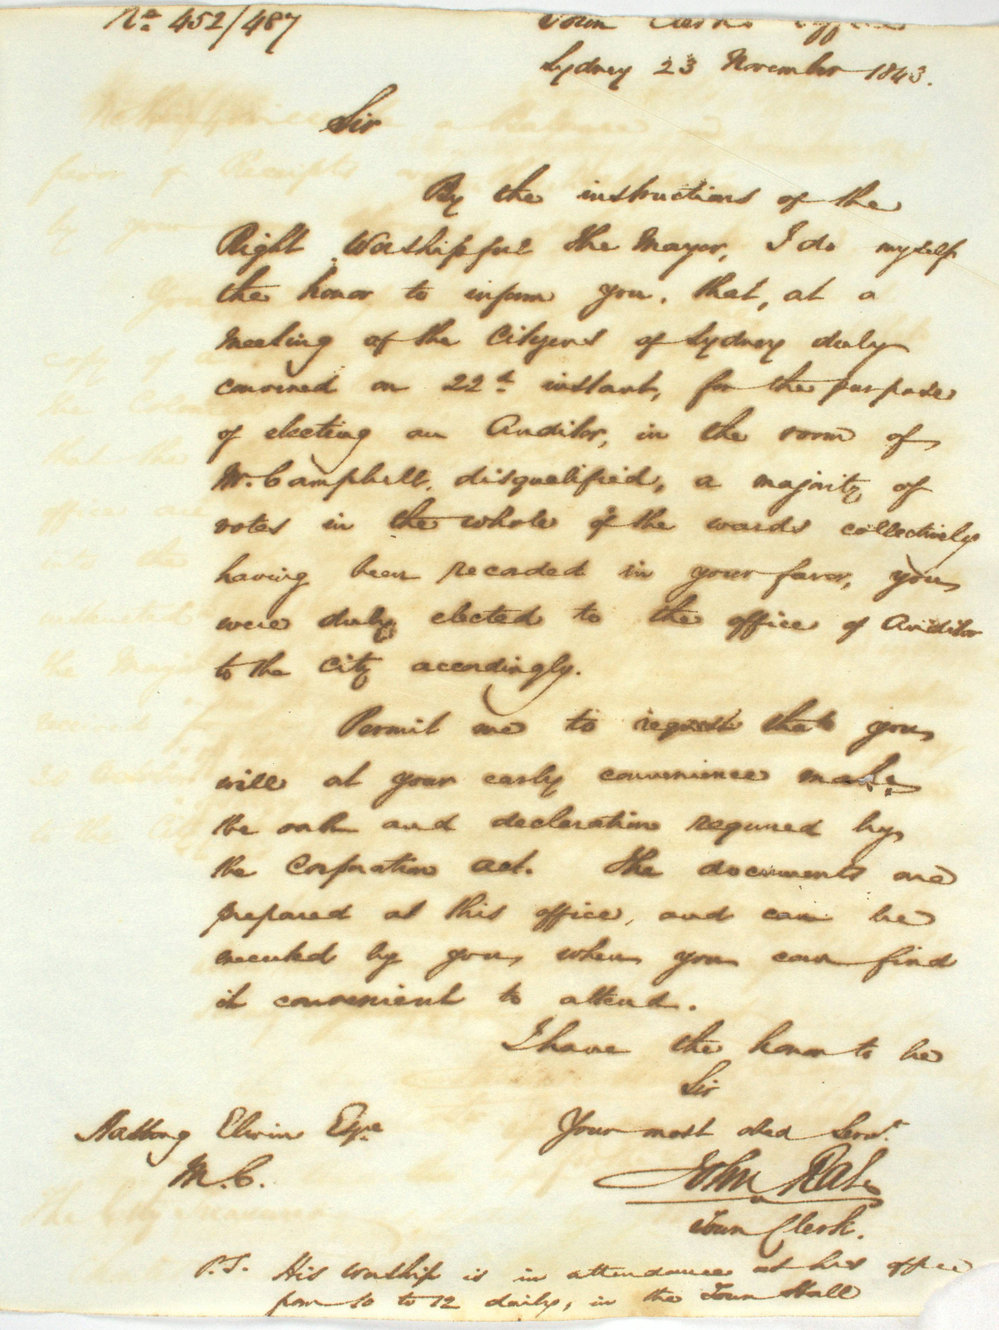 No 452/487
Town Clerk's Office
Sydney 23 November 1843.
Sir
By the instructions of the
Right Worshipful the Mayor, I do myself
the honor to inform you, that, at a
Meeting of the Citizens of Sydney duly
convened on 22d instant, for the purpose
of electing an Auditor, in the room of
Mr. Campbell, disqualified, a majority of
votes in the whole of the wards collectively
having been recorded in your favor, you
were duly elected to the office of Auditor
to the City accordingly.
Permit me to request that you
will at your early convenience make
the oath and declaration required by
the Corporation act. The documents are
prepared at this office, and can be
executed by you when you can find
it convenient to attend.
I have the honor to be
Sir
Your most obed Servt
Esqre
M.C.
John Rae
Town Clerk.
P.S. His worship is in attendance at his office
from 10 to 12 daily, in the Town Hall